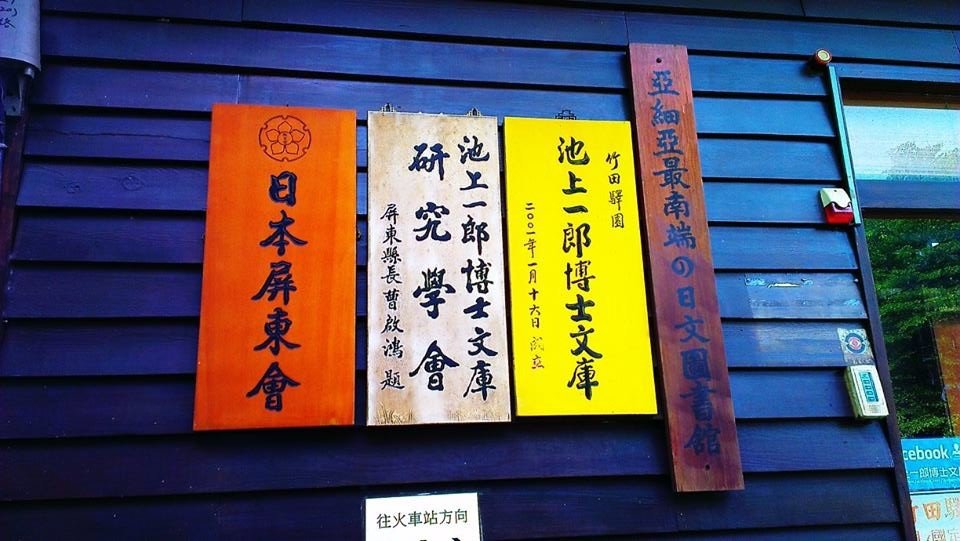 亞細亞最南端の日文圖書館
竹田驛園
池上一郎博士文庫
二〇〇一年一月十六日成立
池上一郎博士文庫
研究學會
屏東縣長曹啟鴻題
日本屏東會
往火車站方向
cebook
一郎博士文